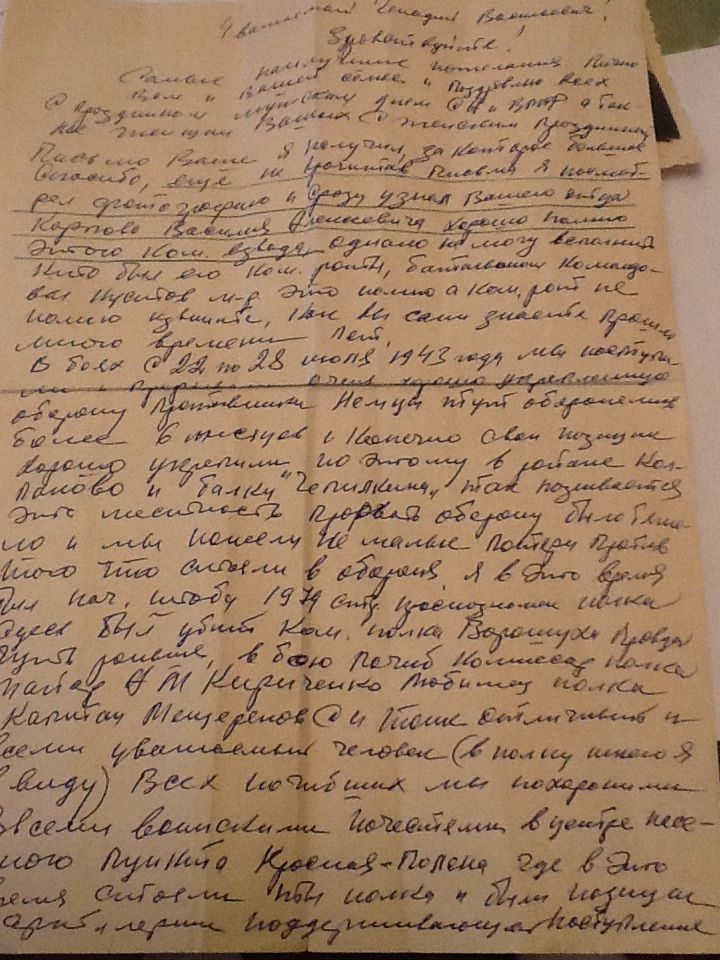 Уважаемый Генадий Васильевич!
Здравствуйте!
Самые наилучшие пожелания Лично
Вам и Вашей семье и Поздравляю всех
С праздником мужским днем СА и ВМФ а так-
же женщин Ваших С женским Праздником
Письмо Ваше я получил, за которое большое
спасибо, ещё не прочитав Письма я посмот-
рел фотографию и Сразу узнал Вашего отца
Карпова Василия Алексеевича хорошо помню
Этого Ком. взвода, однако не могу вспомнить
кто был его Ком. роты, баталионом Командо-
вал м-р Это помню а Ком. рот не
помню извините, Как вы сами знаете Прошло
много времени лет.
В боях С 22 по 28 июля 1943 года мы наступа-
ли и очень хорошо укрепленную
оборону Противника Немцы тут оборонялись
более 6 месяцев и Конечно свои позиции
хорошо укрепили по Этому в районе Кол-
паково и балки "Чепилкина" так называется
Эта местность Прорвать оборону было тяже-
ло и мы понесли не малые Потери Против
того что стояли в обороне я в Это время
был нач. штабу 1979 стр. краснознамен полка
Здесь был убит Ком. полка Ворошуха Правда
Чуть раньше, в бою Погиб Комиссар полка
майор А Т Кириченко Любимец полка
Капитан С И Тоже отличный и
всеми уважаемый человек (в полку имею я
в виду) Всех погибших мы похоронили
Со всеми воинскими Почестями в центре насе-
ленного Пункта Красная-Поляна где в Это
время стояли тылы полка и были позиции
артиллерии поддерживающая наступление